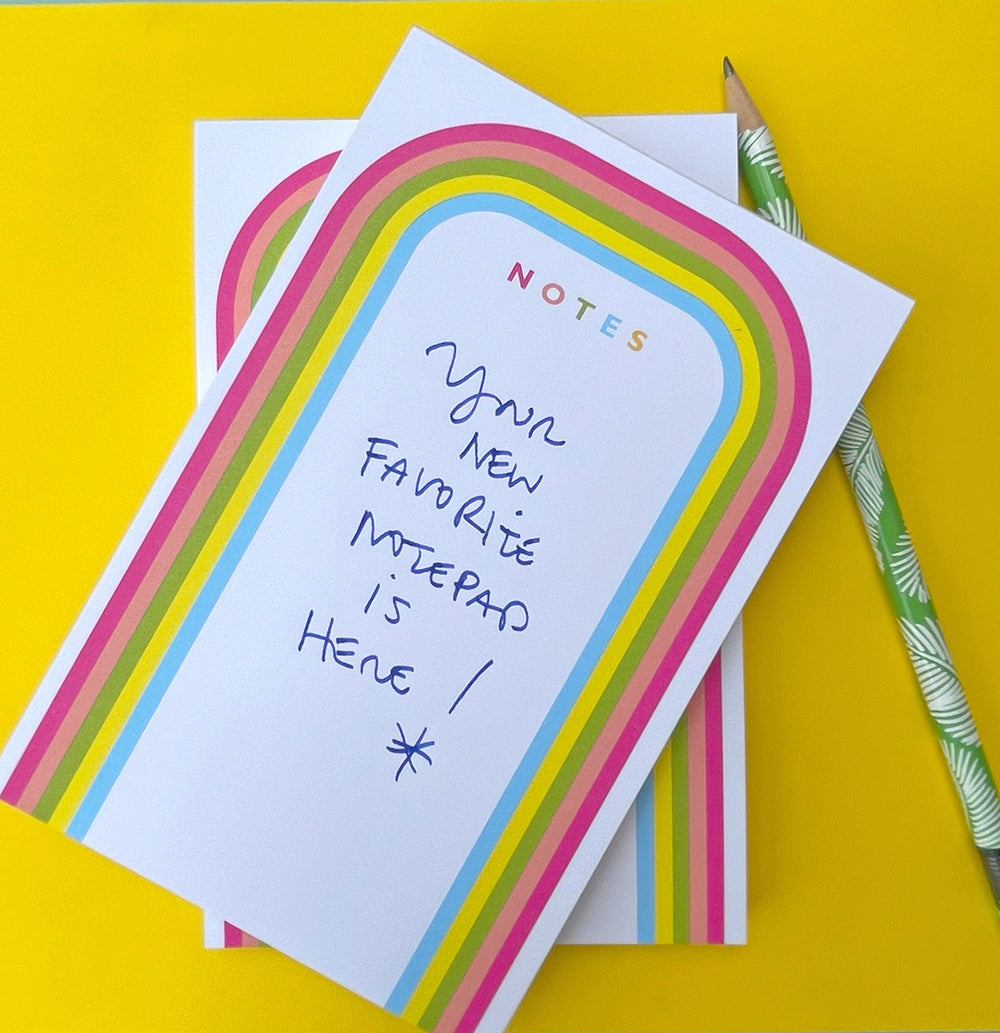 NOTES
Your
NEW
FAVORITE
NOTEPAD
iS
HERE /
*